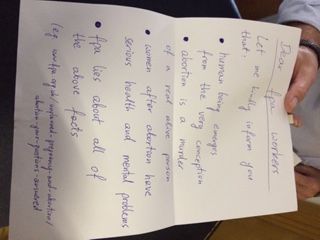 Dear fpa workers
Let me kindly inform you
that:
• human being emerges
from the very conception
• abortion is a murder
of a real alive person
• women after abortion have
serious health and mental problems
• fpa lies about all of
the above facts
(e.g. unplanned-pregnancy-and-abortion/
abortion-your-questions-answered